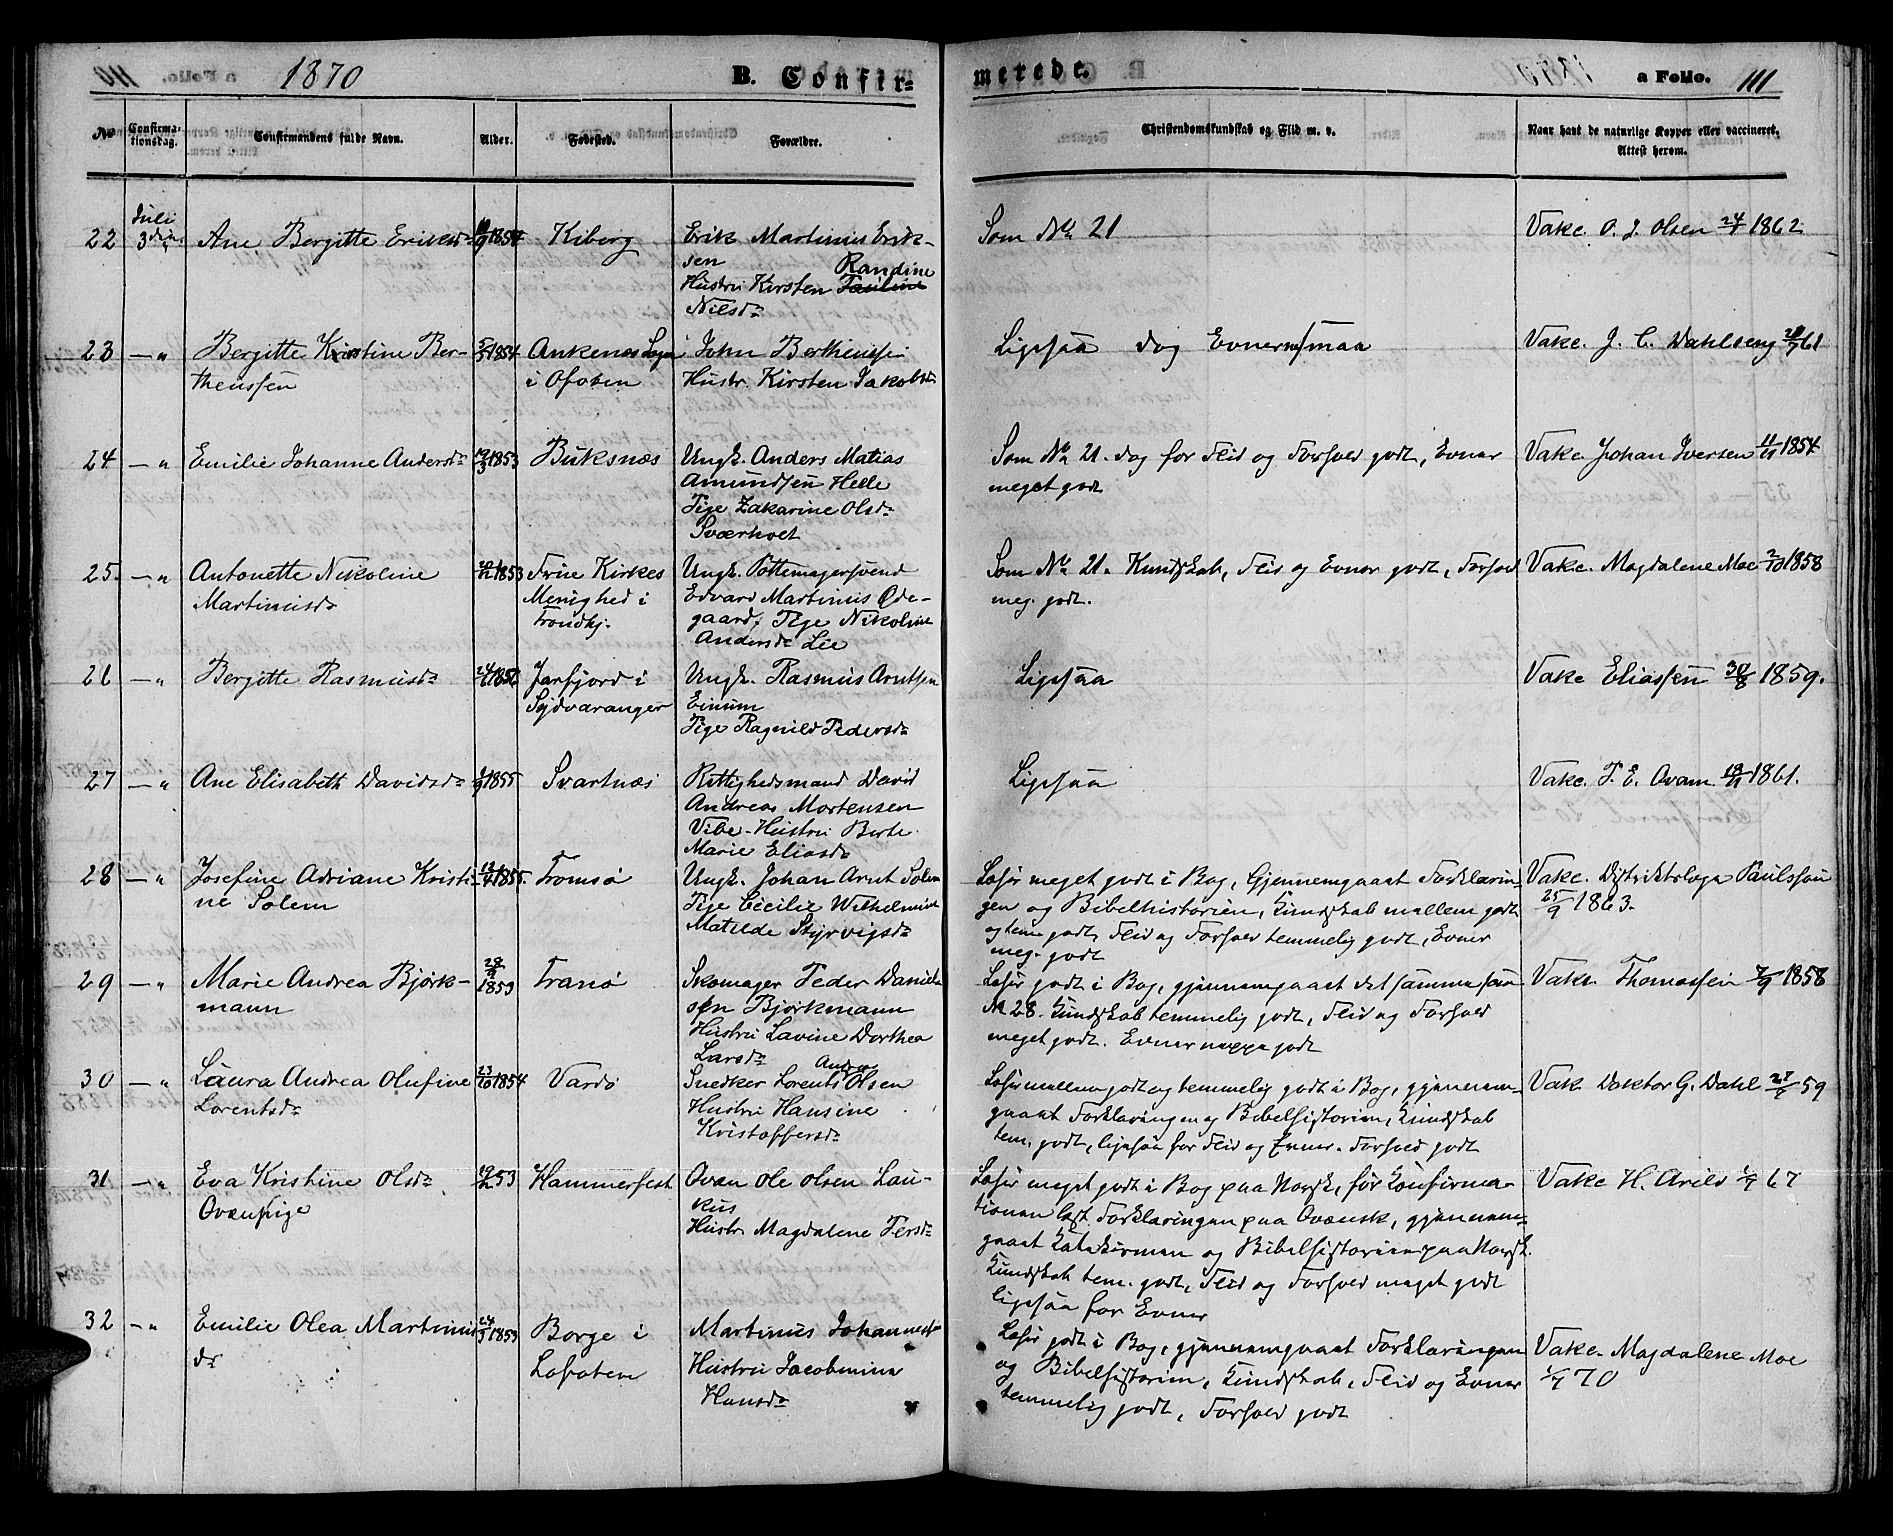 1870
B. Confir-
merede.
a Folio. 111
No
Confirma-
tionsdag.
Confirmandens fulde Navn.
Alder.
Fødested.
Forældre.
Christendomskundskab og Flid m. v.
Naar havt de naturlige Kopper eller vaccineret.
Attest herom.
22 Juli 3die Ane Bergitte Eriksdr 1854 Kiberg
Erik Martinius Erik-
sen Randine
Hustru Kirsten
Nilsdr
Som No 21
Vakc. O. J. Olsen 24/7 1862
23 — " Bergitte Kristine Ber-
theussen
5/3 1854 Ankenes Sogn
i Ofoten
John Bertheussen
Hustr. Kirsten Jakobsdr
Ligesaa dog Evnerne smaa
Vakc. J. C. Dahlseng 61
24 — " Emilie Johanne Andersdr 1853 Buksnæs
Ungk. Anders Matias
Amundsen Helle
Pige Zakarine Olsdr
Sværholt
Som No 21. dog for Flid og Forhold godt, Evner
meget godt
Vakc. Johan Iversen 11/11 1854
25. — " Antonette Nikoline
Martinusdr
1853 Frue Kirkes
Menighed i
Trondhj.
Ungk. Pottemagersvend
Edvard Martinus Øde-
gaard, Pige Nikoline
Andersdr Lie
Som No 21. Kundskab, Flid og Evner godt, Forhold
meg. godt.
Vakc. Magdalene Moe 2/10 1858
26 — " Bergitte Rasmusdr 24/6 Jarfjord i
Sydvaranger
Ungk. Rasmus Arntsen
Einum
Pige Ragnild Pedersdr
Ligesaa
Vakc Eliassen 30/8 1859.
27 — " Ane Elisabeth Davidsdr 1/9 1855 Svartnæs
Rettighedsmand David
Andreas Mortensen
Vibe - Hustru Berte
Marie Eliasdr
Ligesaa
Vakc. P. E. Qvam 1861.
28 — " Josefine Adriane Kristi-
ne Solem
1855. Tromsø
Ungk. Johan Arnt Solem
Pige Cecilie Wilhelmine
Matilde Styrvigsdr
Læser meget godt i Bog, Gjennemgaaet Forklarin-
gen og Bibelhistorien, Kundskab mellem godt
og tem. godt, Flid og Forhold temmelig godt, Evner
meg. godt
Vakc. Distriktslæge Paulsson
25/9 1863.
29 — " Marie Andrea Bjørk-
mann
1853 Tranø
Skomager Peder Daniel-
sen Bjørkmann
Hustru Lavine Dorthea
Larsdr
Læser godt i Bog, gjennemgaaet det samme som
No 28. Kundskab temmelig godt, Flid og Forhold
meget godt. Evner neppe godt
Vakc Thomassen 7/9 1858
30 — " Laura Andrea Olufine
Lorentsdr
23/10 1854 Vardø
Snedker Lorents Andreas Olsen
Hustru Hansine
Kristoffersdr
Læser mellem godt og temmelig godt i Bog, gjennem-
gaaet Forklaringen og Bibelhistorien, Kundskab
tem. godt, ligesaa for Flid og Evner. Forhold godt
Vakc Doktor G. Dahl 59
31 — " Eva Kristine Olsdr
Qvænpige
53 Hammerfest
Qvæn Ole Olsen Lau-
kus
Hustr Magdalene Persdr
Læser meget godt i Bog paa Norsk, før Konfirma-
tionen læst Forklaringen paa Qvænsk, gjennem-
gaaet Katekismen og Bibelhistorien paa Norsk.
Kundskab tem. godt, Flid og Forhold meget godt
ligesaa for Evner
Vakc H. Arild 1/7 67
32 — " Emilie Olea Martinus
dr
24/3 1853 Borge i
Lofoten
Martinus Johannessen
Hustru Jacobmina
Hansdr
Læser godt i Bog, gjennemgaaet Forklaringen
og Bibelhistorien, Kundskab, Flid og Evner
temmelig godt, Forhold godt
Vakc. Magdalene Moe
1/7 70